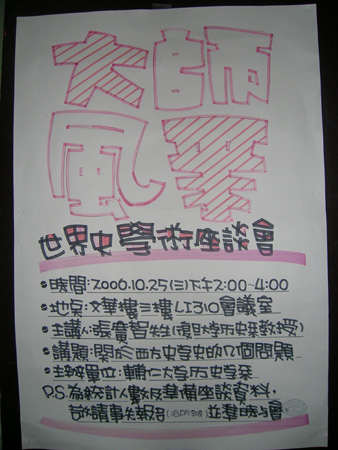 大師
風采
世界史學術座談會
時間:2006.10.25(三)下午2:00~4:00
地點:文華樓三樓LI310會議室
主講人:張廣智先生(復旦大學历史系教授)
講題:關於西方史学史的几個問題
主辦單位:輔仁大学历史学系
P.S.為統計人數及準備座談資料,
敬請事先報名(洽所辦)並準時与會